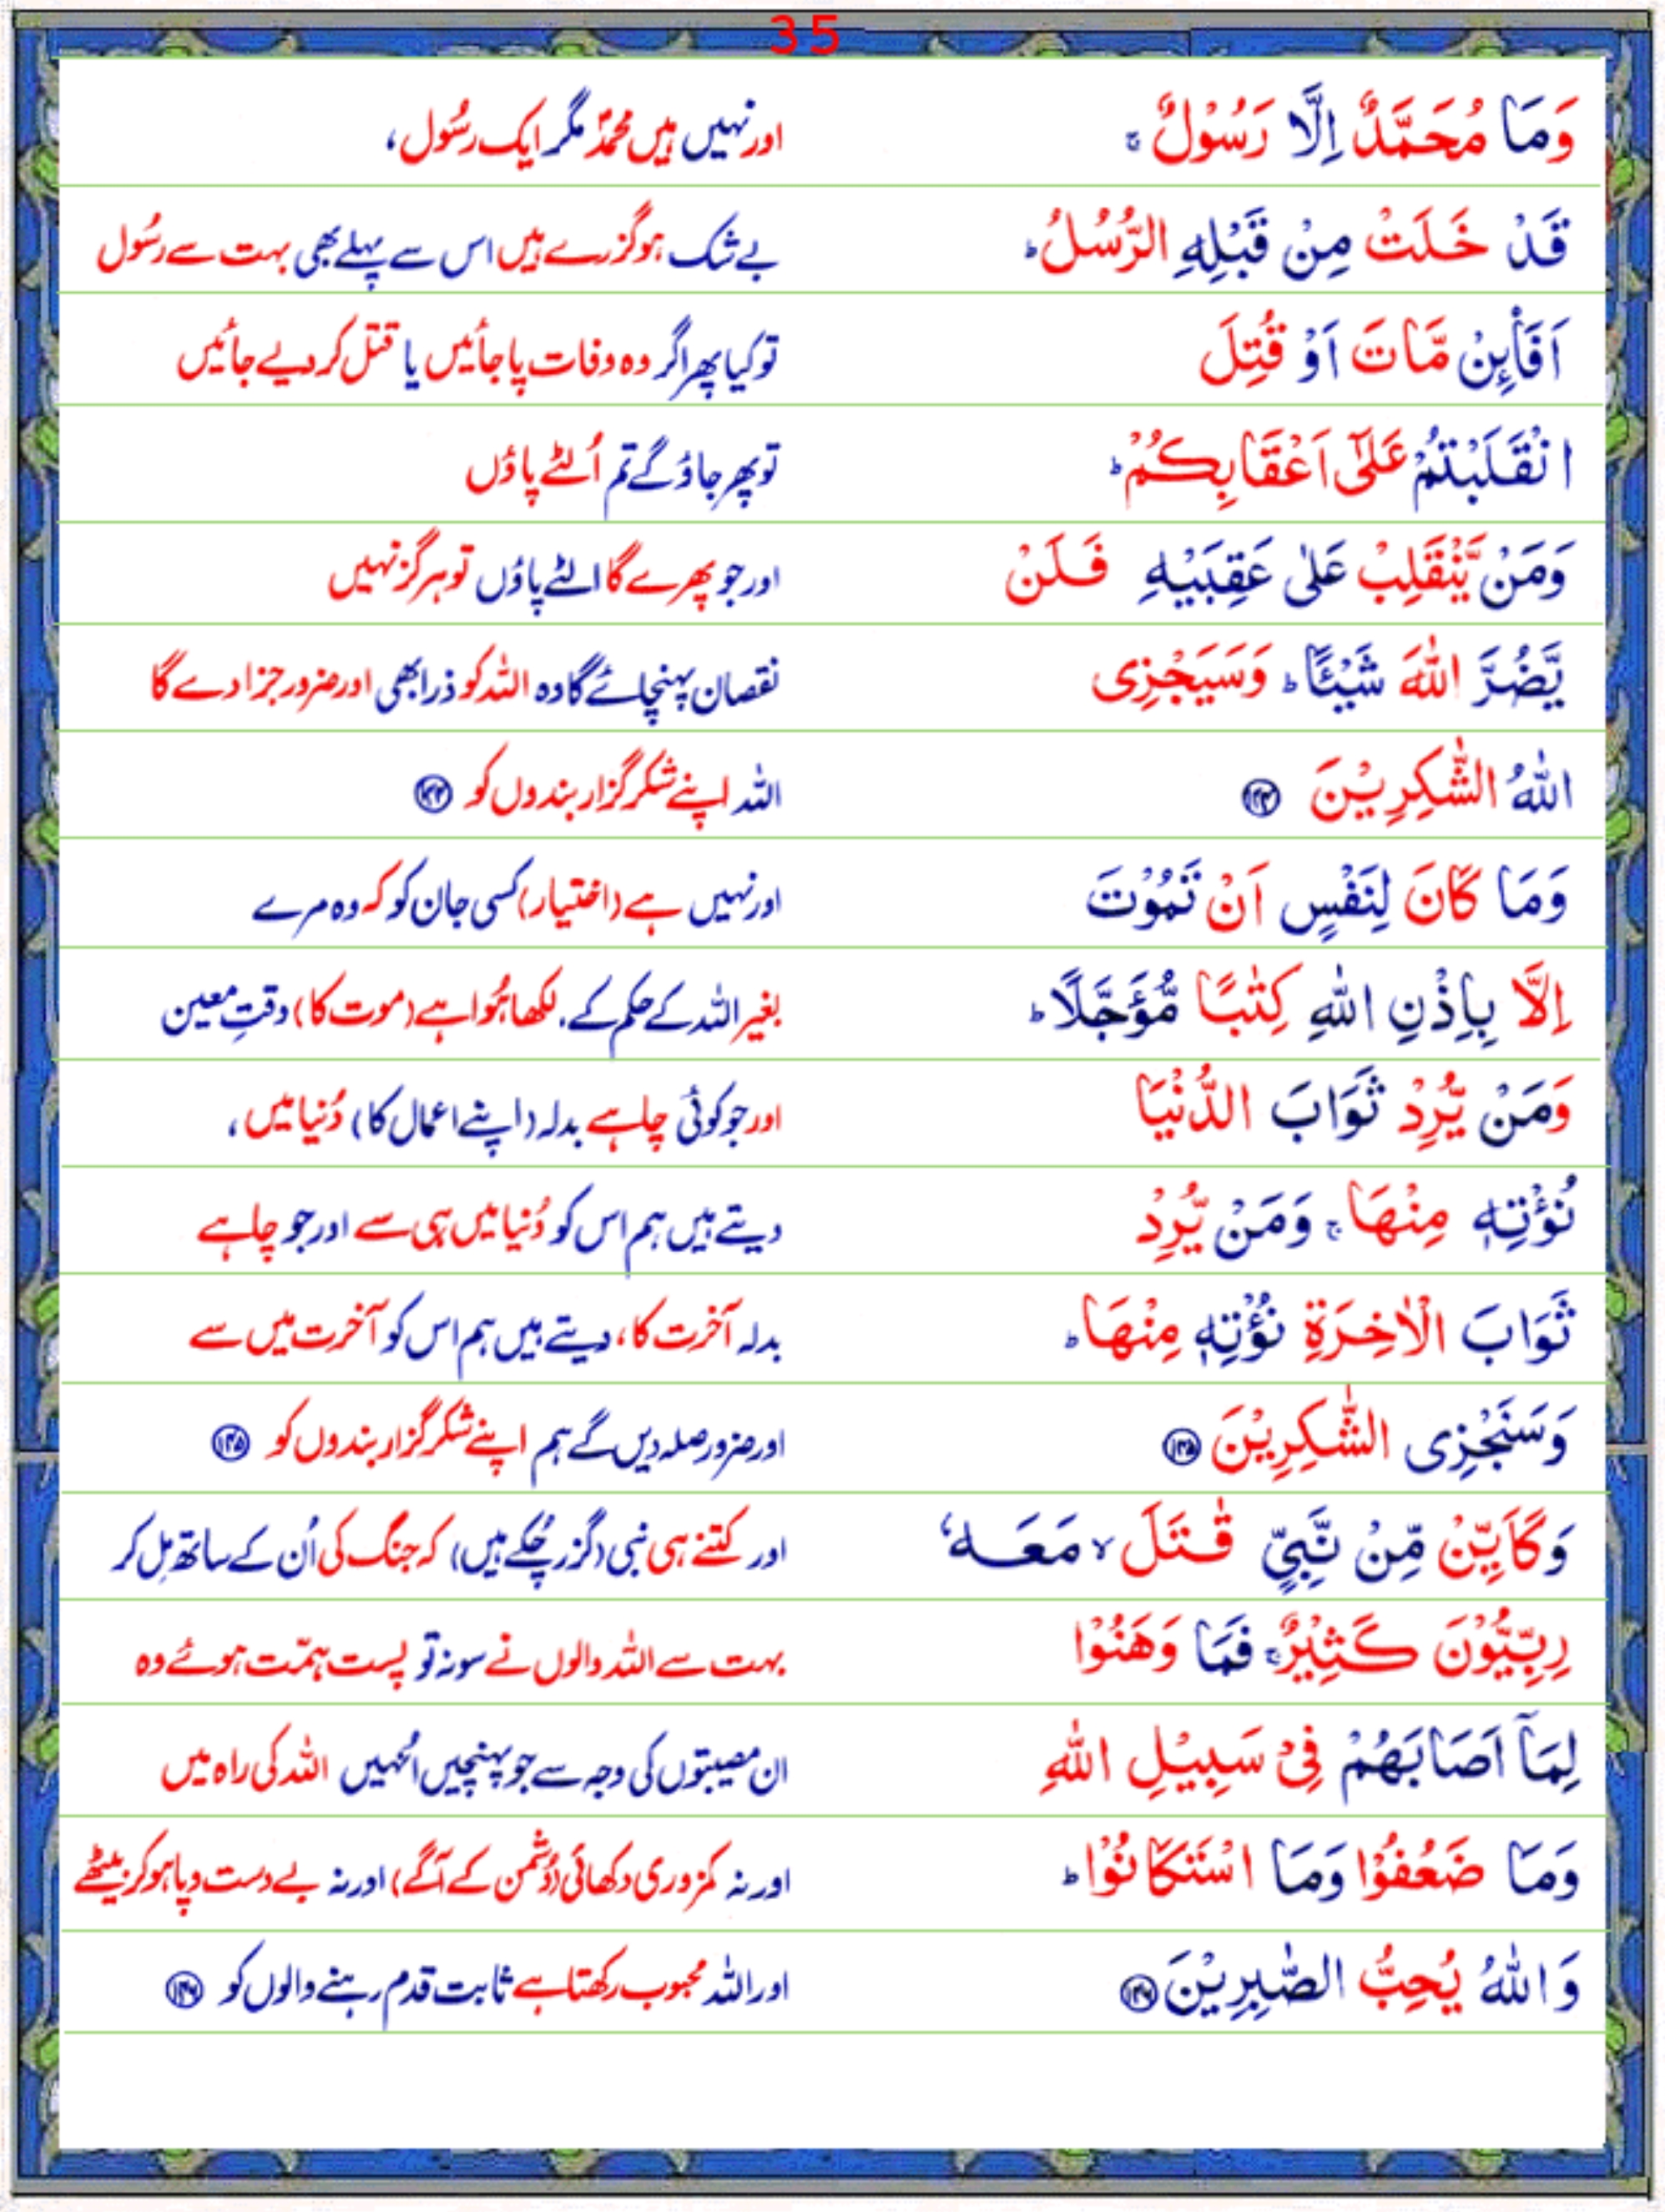 35
وَمَا مُحَمَّدٌ اِلَّا رَسُوْلٌ ۚ اور نہیں ہیں محمدؐ مگر ایک رسُول،
قَدْ خَلَتْ مِنْ قَبْلِهِ الرُّسُلُ ؕ بے شک ہو گزرے ہیں اس سے پہلے بھی بہت سے رسُول
اَفَا۟ئِنْ مَّاتَ اَوْ قُتِلَ تو کیا پھر اگر وہ وفات پا جائیں یا قتل کر دیے جائیں
انْقَلَبْتُمْ عَلٰٓى اَعْقَابِكُمْ ؕ تو پھر جاؤ گے تم اُلٹے پاؤں
وَمَنْ يَّنْقَلِبْ عَلٰى عَقِبَيْهِ فَلَنْ اور جو پھرے گا الٹے پاؤں تو ہرگز نہیں
يَّضُرَّ اللّٰهَ شَيْـًٔا ؕ وَسَيَجْزِى نقصان پہنچائے گا وہ اللہ کو ذرا بھی اور ضرور جزا دے گا
اللّٰهُ الشّٰكِرِيْنَ ۱۴۴ اللہ اپنے شکر گزار بندوں کو ۱۴۴
وَمَا كَانَ لِنَفْسٍ اَنْ تَمُوْتَ اور نہیں ہے (اختیار) کسی جان کو کہ وہ مرے
اِلَّا بِاِذْنِ اللّٰهِ كِتٰبًا مُّؤَجَّلًا ؕ بغیر اللہ کے حکم کے۔ لکھا ہُوا ہے (موت کا) وقتِ معین
وَمَنْ يُّرِدْ ثَوَابَ الدُّنْيَا اور جو کوئی چاہے بدلہ (اپنے اعمال کا) دُنیا میں،
نُؤْتِهٖ مِنْهَا ۚ وَمَنْ يُّرِدْ دیتے ہیں ہم اس کو دُنیا میں ہی سے اور جو چاہے
ثَوَابَ الْاٰخِرَةِ نُؤْتِهٖ مِنْهَا ؕ بدلہ آخرت کا، دیتے ہیں ہم اس کو آخرت میں سے
وَسَنَجْزِى الشّٰكِرِيْنَ ۱۴۵ اور ضرور صلہ دیں گے ہم اپنے شکر گزار بندوں کو ۱۴۵
وَكَاَيِّنْ مِّنْ نَّبِىٍّ قٰتَلَ ۙ مَعَهٗ اور کتنے ہی نبی (گزر چُکے ہیں) کہ جنگ کی اُن کے ساتھ مِل کر
رِبِّيُّوْنَ كَثِيْرٌ ۚ فَمَا وَهَنُوْا بہت سے اللہ والوں نے سو نہ تو پست ہمّت ہوئے وہ
لِمَآ اَصَابَهُمْ فِىْ سَبِيْلِ اللّٰهِ ان مصیبتوں کی وجہ سے جو پہنچیں اُنہیں اللہ کی راہ میں
وَمَا ضَعُفُوْا وَمَا اسْتَكَانُوْا ؕ اور نہ کمزوری دکھائی (دُشمن کے آگے) اور نہ بے دست و پا ہو کر بیٹھے
وَاللّٰهُ يُحِبُّ الصّٰبِرِيْنَ ۱۴۶ اور اللہ محبوب رکھتا ہے ثابت قدم رہنے والوں کو ۱۴۶